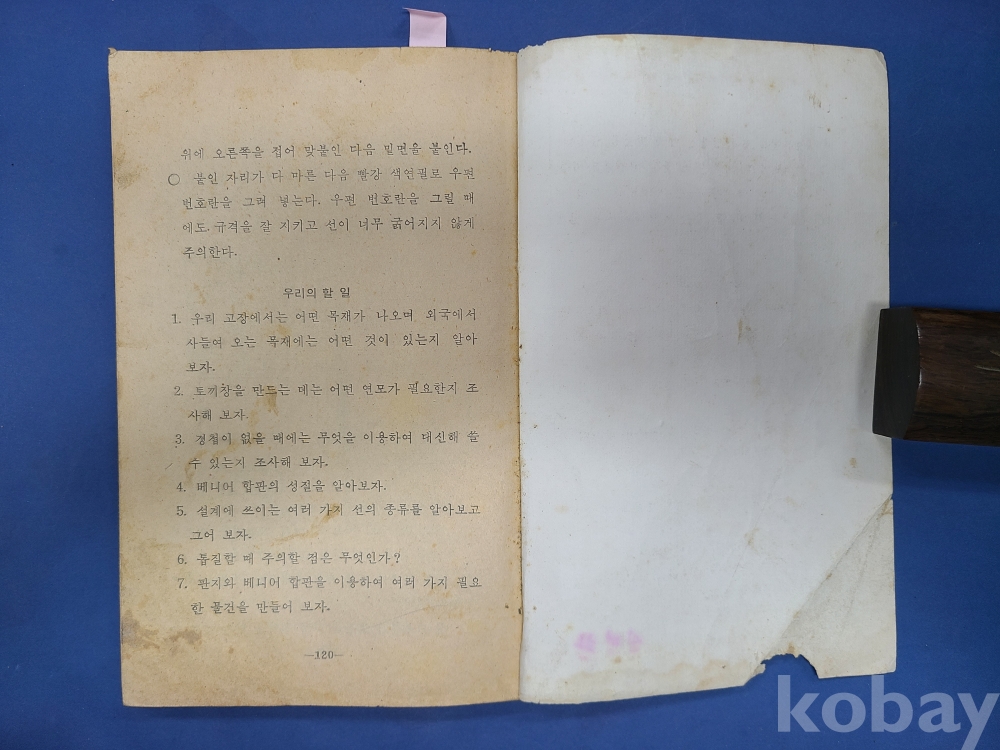 위에 오른쪽을 접어 맞붙인 다음 밑면을 붙인다.
○ 붙인 자리가 다 마른 다음 빨강 색연필로 우편
번호란을 그려 넣는다. 우편 번호란을 그릴 때
에도 규격을 잘 지키고 선이 너무 굵어지지 않게
주의한다.
우리의 할 일
1. 우리 고장에서는 어떤 목재가 나오며, 외국에서
사들여 오는 목재에는 어떤 것이 있는지 알아
보자.
2. 토끼장을 만드는 데는 어떤 연모가 필요한지 조
사해 보자.
3. 경첩이 없을 때에는 무엇을 이용하여 대신해 쓸
수 있는지 조사해 보자.
4. 베니어 합판의 성질을 알아보자.
5. 설계에 쓰이는 여러 가지 선의 종류를 알아보고
그어 보자.
6. 톱질할 때 주의할 점은 무엇인가?
7. 판지와 베니어 합판을 이용하여 여러 가지 필요
한 물건을 만들어 보자.
—120—
kobay